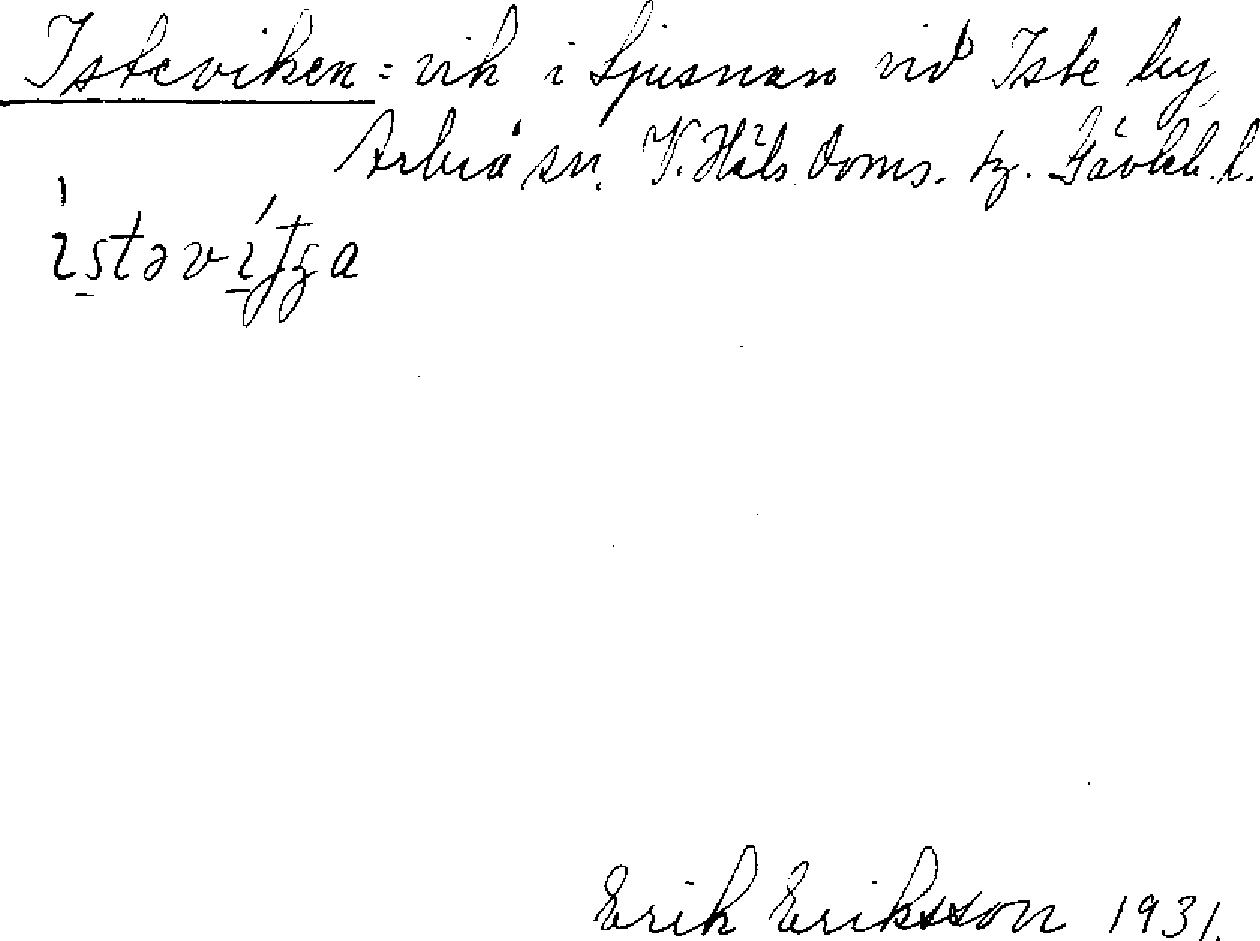 Isteviken = vik i Ljusnan vid Iste by,
Arbrå sn. V. Häls. Doms. tg. Gävleb. l.
Erik Eriksson 1931.